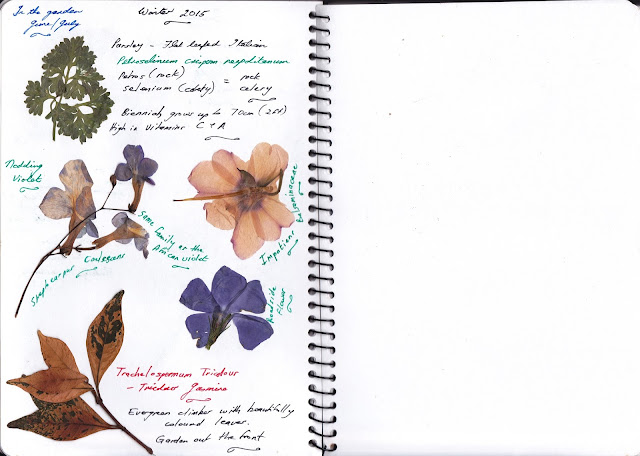 In the garden
June/July
Winter 2015
Parsley - Flat leafed Italian
Petroselinum crispum neapolitanum
Petros (rock) = rock
selenium (celery) celery
Biennial, grows up to 70cm (2ft)
High in Vitamins C + A
Nodding
Violet
Same family as the
African violet
Streptocarpus Caulescens
Impatiens Balsaminaceae
Roadside
Flower
Trachelospermum Tricolour
- Tricolour Jasmine
Evergreen climber with beautifully
coloured leaves.
Garden out the front